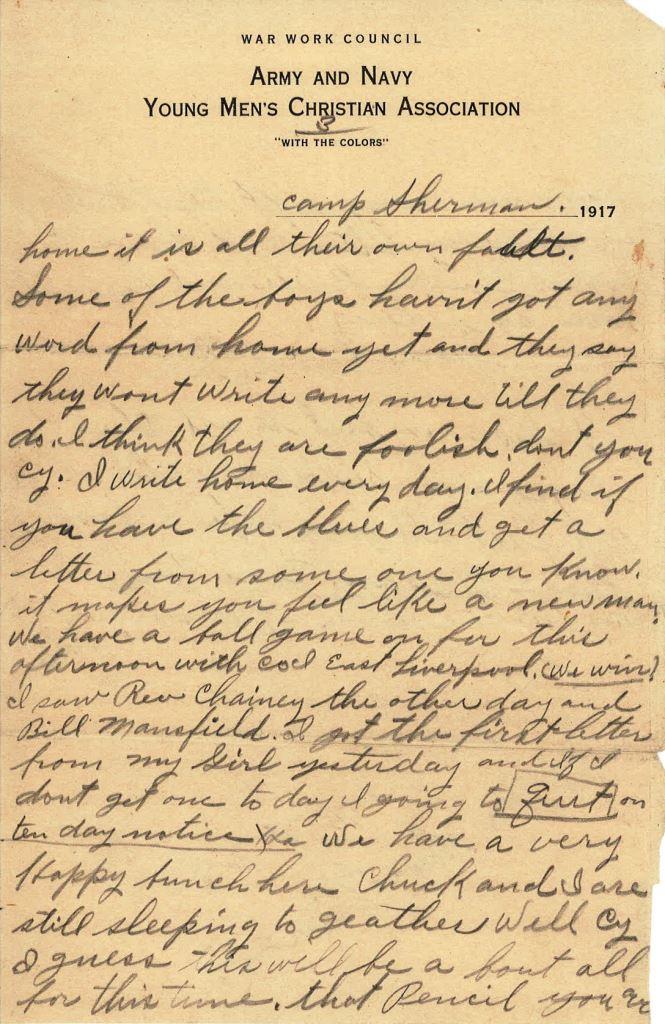 WAR WORK COUNCIL
ARMY AND NAVY
YOUNG MEN'S CHRISTIAN ASSOCIATION
3
"WITH THE COLORS"
Camp Sherman. 1917
home it is all their own fault.
Some of the boys havn't got any
word from home yet and they say
they wont write any more till they
do. I think they are foolish, dont you
Cy. I write home every day. I find if
you have the blues and get a
letter from some one you know.
it makes you feel like a new man.
We have a ball game on for this
afternoon with East Liverpool. (We win?
I saw Rev Chainey the other day and
Bill Mansfield. I got the first letter
from my Girl yesterday and if I
dont get one to day I going to Quit on
ten day notice We have a very
Happy bunch here Chuck and I are
still sleeping to geather Well Cy
I guess this will be a bout all
for this time. that Pencil you